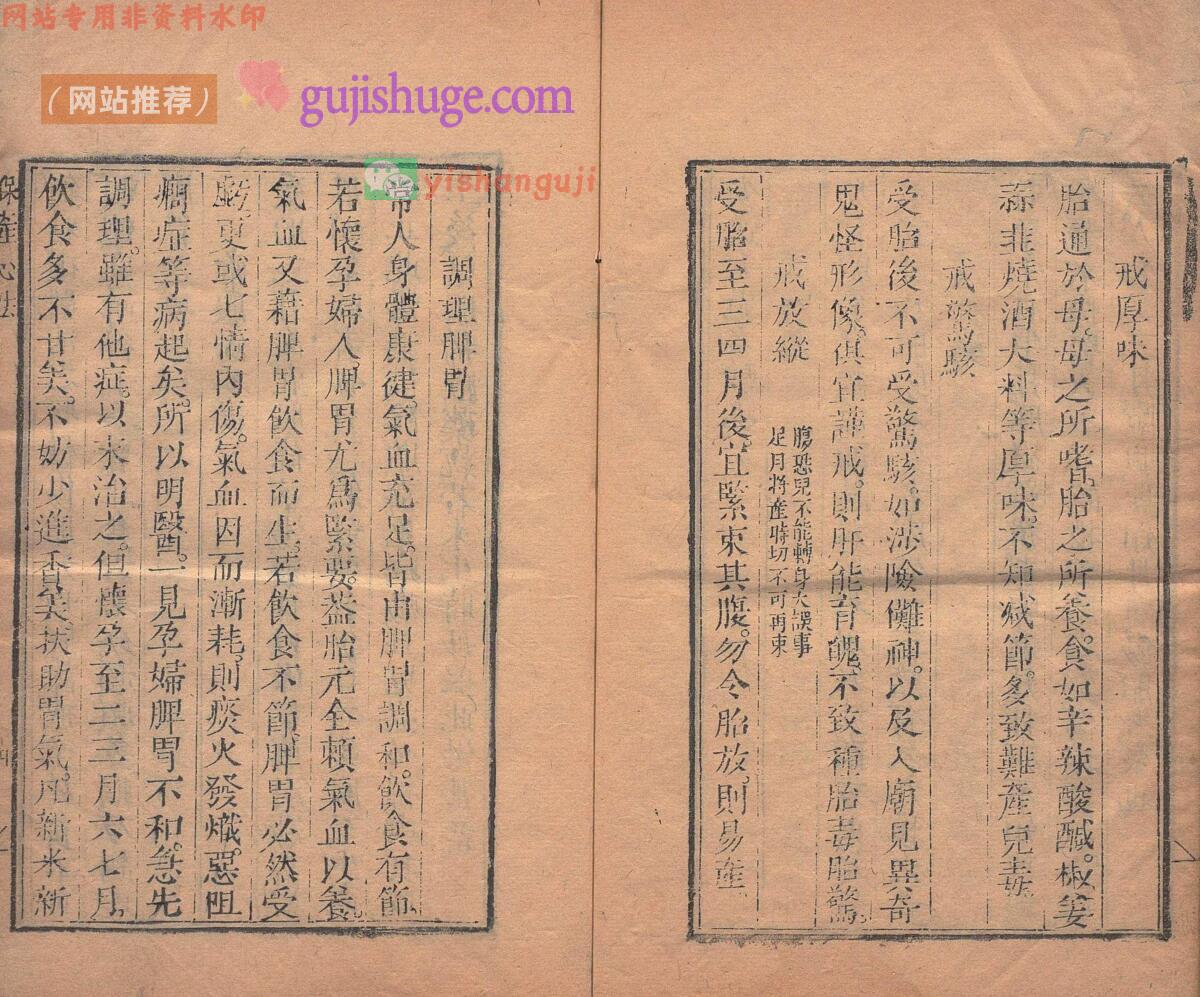 网站专用非资料水印
（网站推荐）
gujishuge.com
yishanguji
戒厚味
胎通於母。母之所嗜、胎之所養。食如辛辣酸醎。椒姜
蒜韭燒酒大料等厚味。不知减節。多致難產兒毒
戒驚駭
受胎後不可受驚駭。如涉險儺神。以及入廟見異奇
鬼怪形像。俱宜謹戒。則肝能育魂。不致種胎毒胎驚。
戒放縱
腹恐兒不能轉身大誤事
足月將產時切不可再束
受胎至三四月後宜緊束其腹。勿令胎放。則易產
調理脾胃
常人身體康健。氣血充足。皆由脾胃調和。飲食有節。
若懷孕婦人。脾胃尤爲緊要。葢胎元全頼氣血以養。
氣血又藉脾胃飲食而生。若飲食不節、脾胃必然受
虧。更或七情內傷。氣血因而漸耗。則痰火發熾。惡阻
癎症等病起矣。所以明醫。一見孕婦脾胃不和。急先
調理。雖有他症。以末治之。但懷孕至二三月六七月。
飲食多不甘美。不妨少進香美。扶助胃氣。凡新米新
保產心法